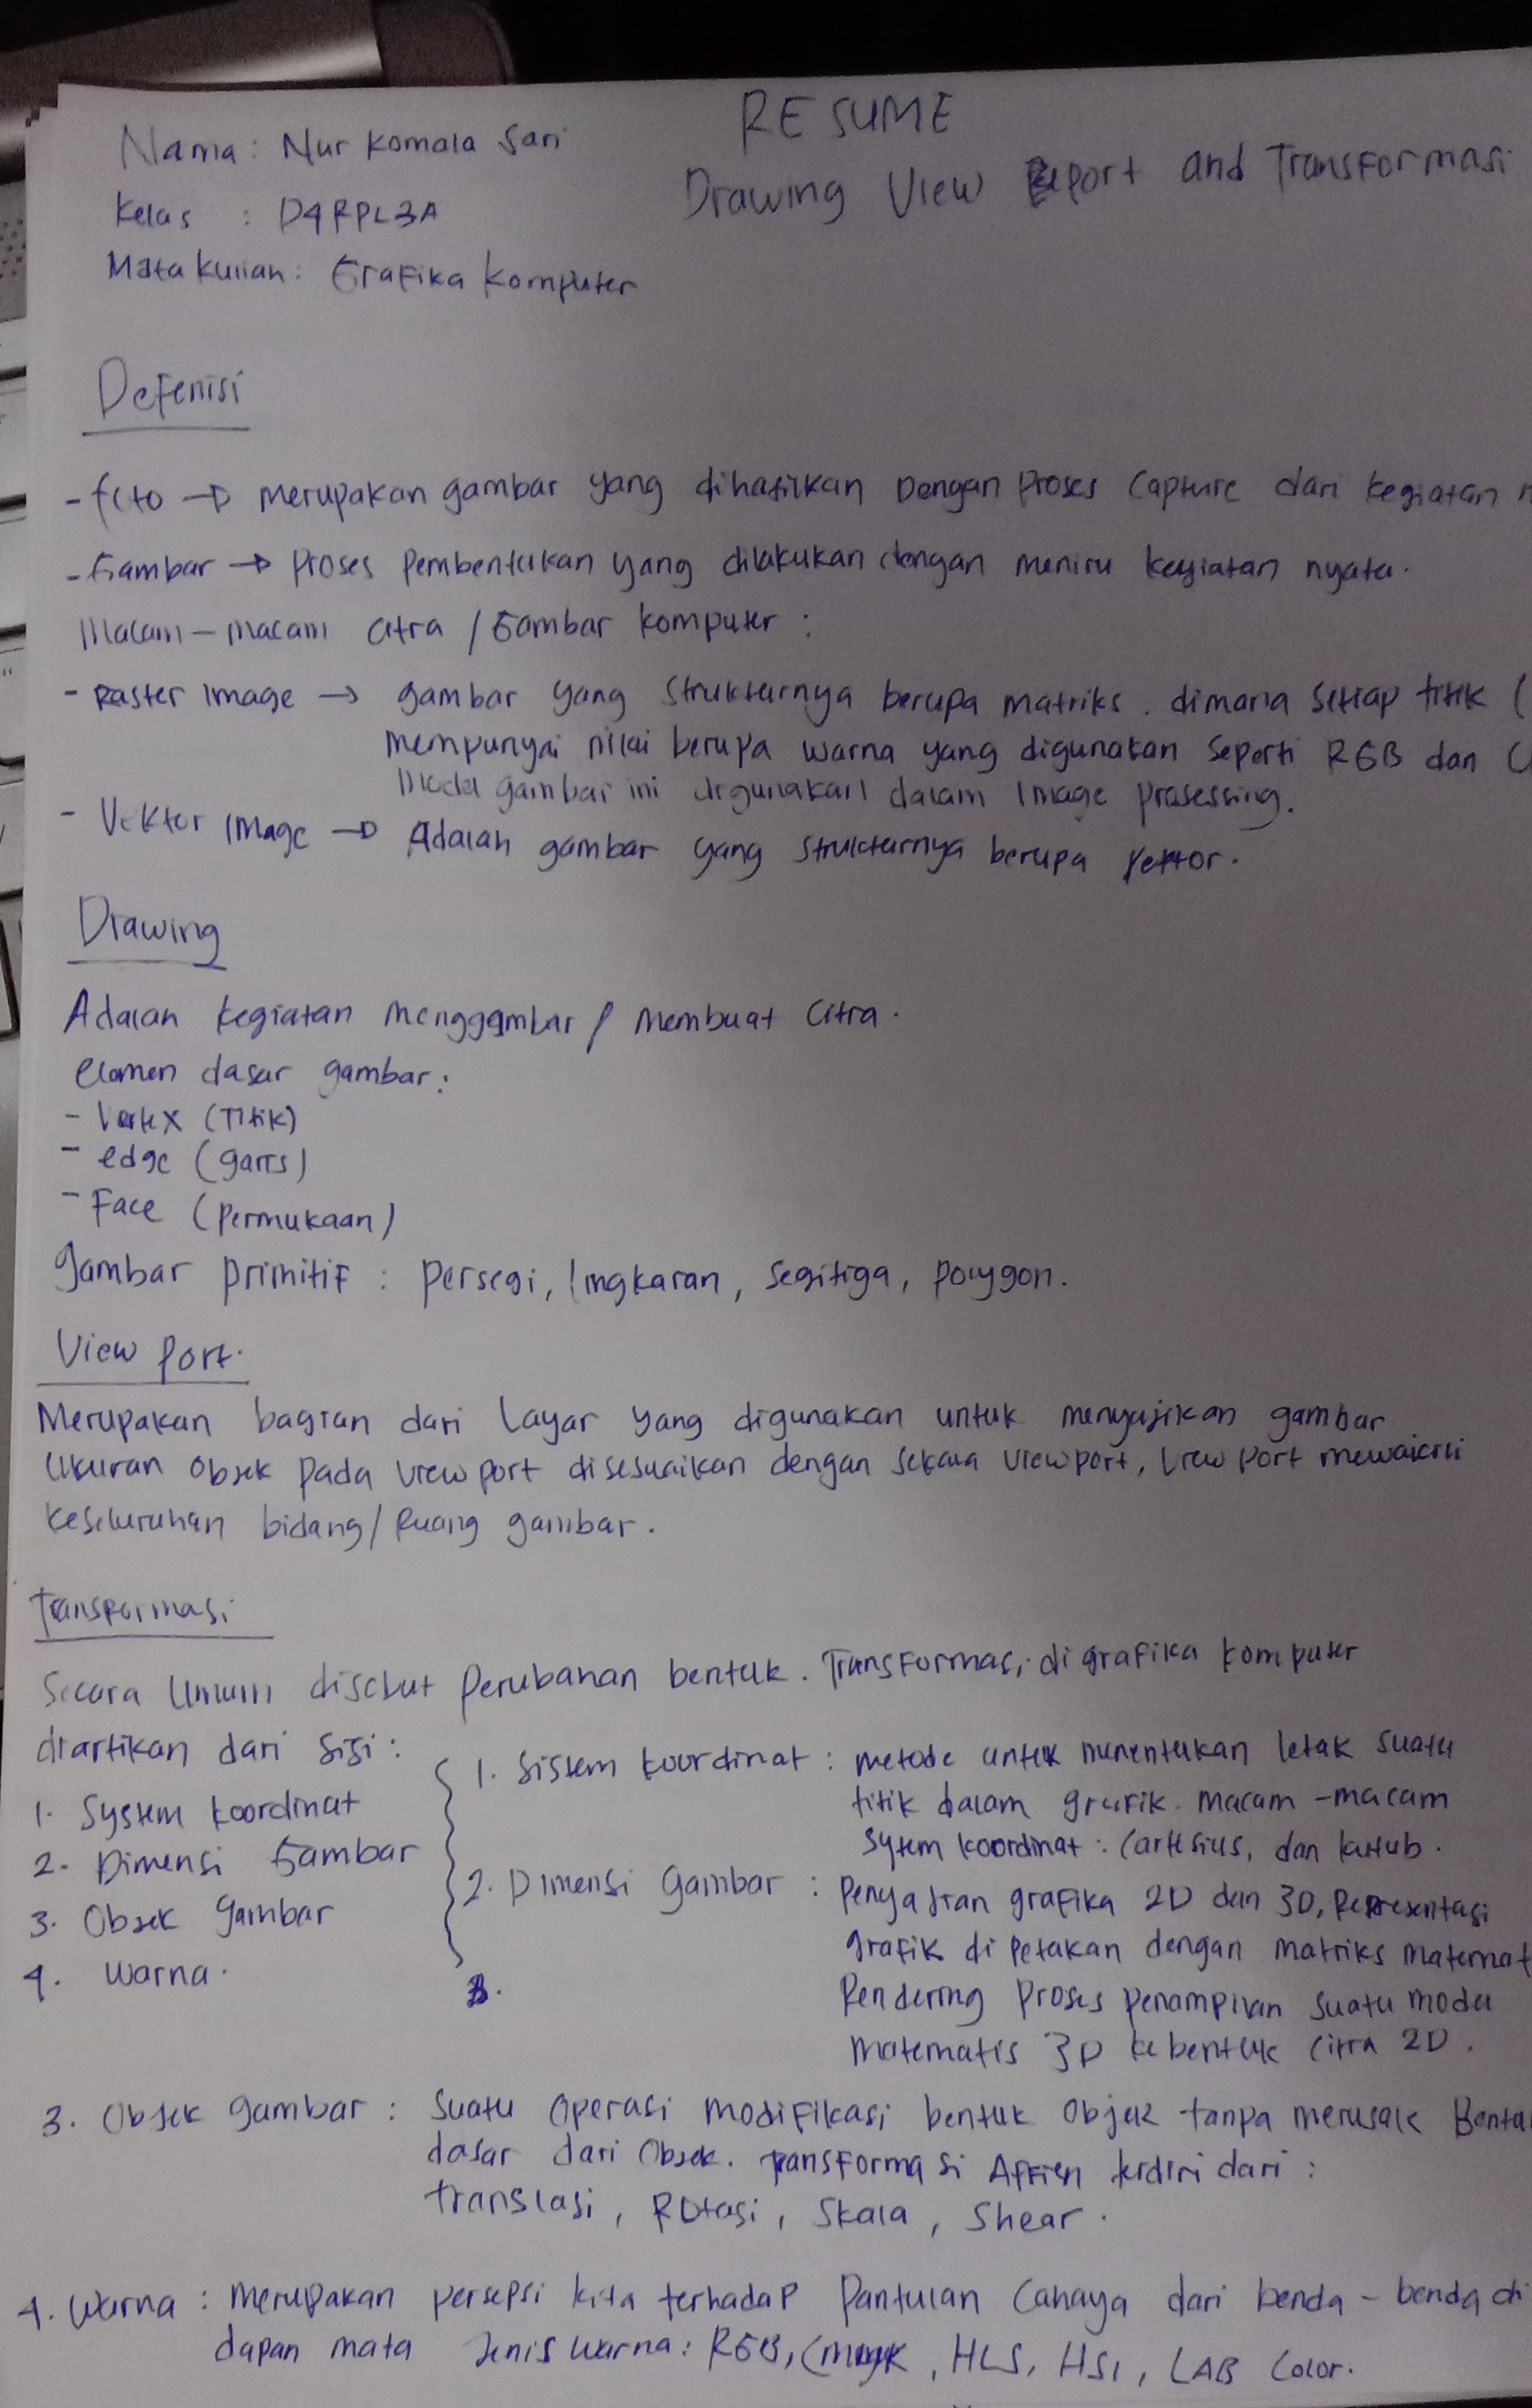 RESUME
Drawing View Port and Transformasi
Nama : Nur Komala Sari
Kelas : D4RPL3A
Mata kuliah : Grafika Komputer
Defenisi
- foto → merupakan gambar yang dihasilkan Dengan Proses Capture dari kegiatan
- Gambar → Proses Pembentukan yang dilakukan dengan meniru kegiatan nyata.
Macam - macam citra / Gambar komputer :
- Raster Image → gambar yang Strukturnya berupa matriks. dimana Setiap titik (
mempunyai nilai berupa warna yang digunakan Seperti RGB dan
Model gambar ini digunakan dalam Image Prosessing.
- Vektor Image → Adalah gambar yang Strukturnya berupa vektor.
Drawing
Adalah kegiatan menggambar / membuat Citra.
elemen dasar gambar :
- Vertex (Titik)
- edge (garis)
- Face (Permukaan)
gambar primitif : persegi, lingkaran, segitiga, polygon.
View Port.
Merupakan bagian dari Layar yang digunakan untuk menyajikan gambar
Ukuran objek pada viewport disesuaikan dengan skala viewport, view port mewakili
keseluruhan bidang / Ruang gambar.
Transformasi
Secara Umum disebut Perubahan bentuk. Transformasi di grafika komputer
diartikan dari sisi :
1. System koordinat
2. Dimensi Gambar
3. Objek gambar
4. Warna.
1. Sistem koordinat : metode untuk menentukan letak suatu
titik dalam grafik. macam - macam
sytem koordinat : Cartesius, dan kutub.
2. Dimensi gambar : Penyajian grafika 2D dan 3D, Representasi
grafik di petakan dengan matriks matemat
Rendering Proses penampilan suatu model
matematis 3D ke bentuk citra 2D.
3.
3. Objek gambar : Suatu Operasi modifikasi bentuk Objek tanpa merusak Bentu
dasar dari Objek. Transformasi Affien terdiri dari :
translasi, Rotasi, Skala, Shear.
4. Warna : Merupakan persepsi kita terhadap Pantulan Cahaya dari benda - benda di
dapan mata Jenis warna : RGB, CMYK, HLS, HSI, LAB Color.